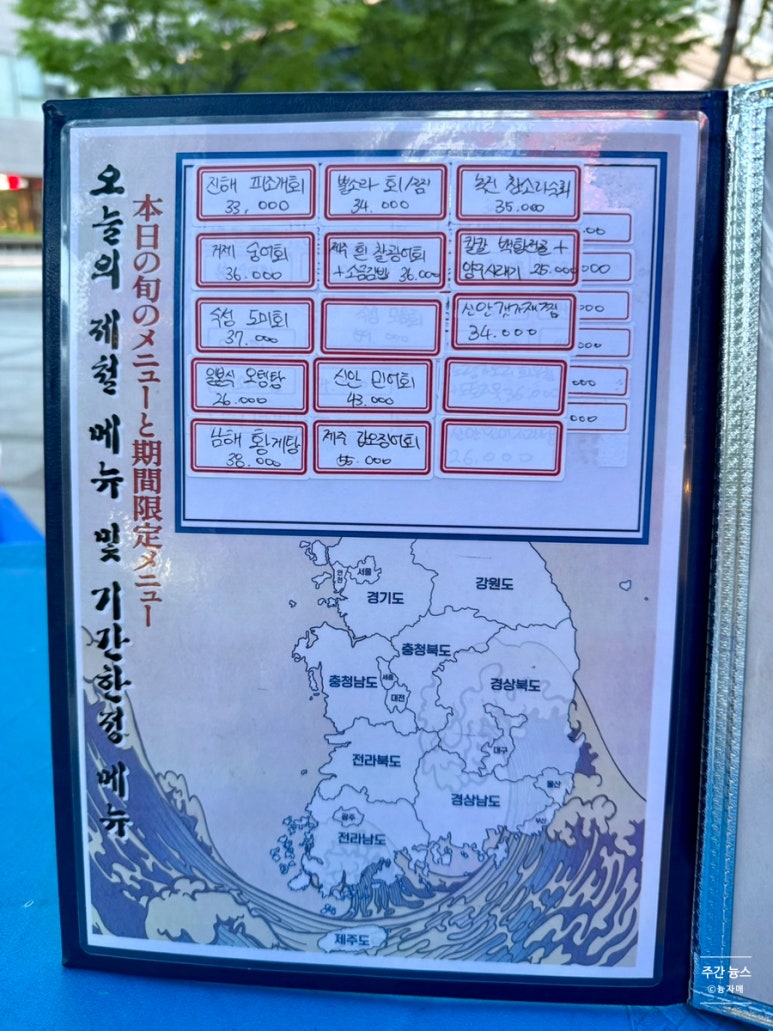 오늘의 제철 메뉴 및 기간한정 메뉴
本日の旬のメニューと期間限定メニュー
진해 피조개회
33,000
뿔소라 회/찜
34.000
참소라숙회
35.000
거제 숭어회
36.000
제주 흰 찰광어회
+ 소금김밥 36.000
백합전골 +
25.000
숙성 도미회
37.000
신안갯가재찜
34.000
일본식 오뎅탕
26.000
신안 민어회
43.000
남해 황게탕
38.000
제주 갑오징어회
55.000
26.000
인천
서울
경기도
강원도
충청북도
충청남도
세종
대전
경상북도
전라북도
대구
경상남도
울산
부산
광주
전라남도
제주도
주간 늉스
©늉자매